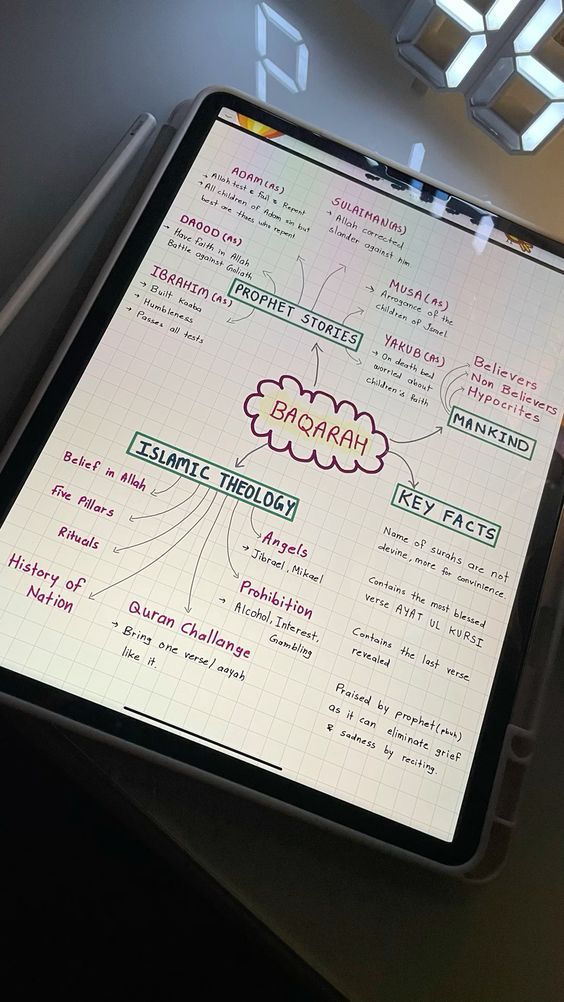 ADAM(AS)
→ Allah test & Fail & Repent
→ All children of Adam sin but
best are thoes who repent
SULAIMAN(AS)
→ Allah corrected
slander against him.
DAOOD (AS)
→ Have faith in Allah
Battle against Goliath
MUSA(AS)
→ Arrogance of the
children of Israel
IBRAHIM(AS)
→ Built Kaaba
→ Humbleness
→ Passes all tests
PROPHET STORIES
YAKUB(AS)
→ On death bed
worried about
children's faith
Believers
Non Believers
Hypocrites
MANKIND
BAQARAH
ISLAMIC THEOLOGY
Belief in Allah
Five Pillars
Rituals
History of
Nation
Quran Challange
→ Bring one verse/aayah
like it.
Angels
→ Jibrael, Mikael
Prohibition
→ Alcohol, Interest,
Gambling
KEY FACTS
Name of surahs are not
devine, more for convinience.
Contains the most blessed
verse AYAT UL KURSI
Contains the last verse
revealed
Praised by prophet(pbuh)
as it can eliminate grief
& sadness by reciting.